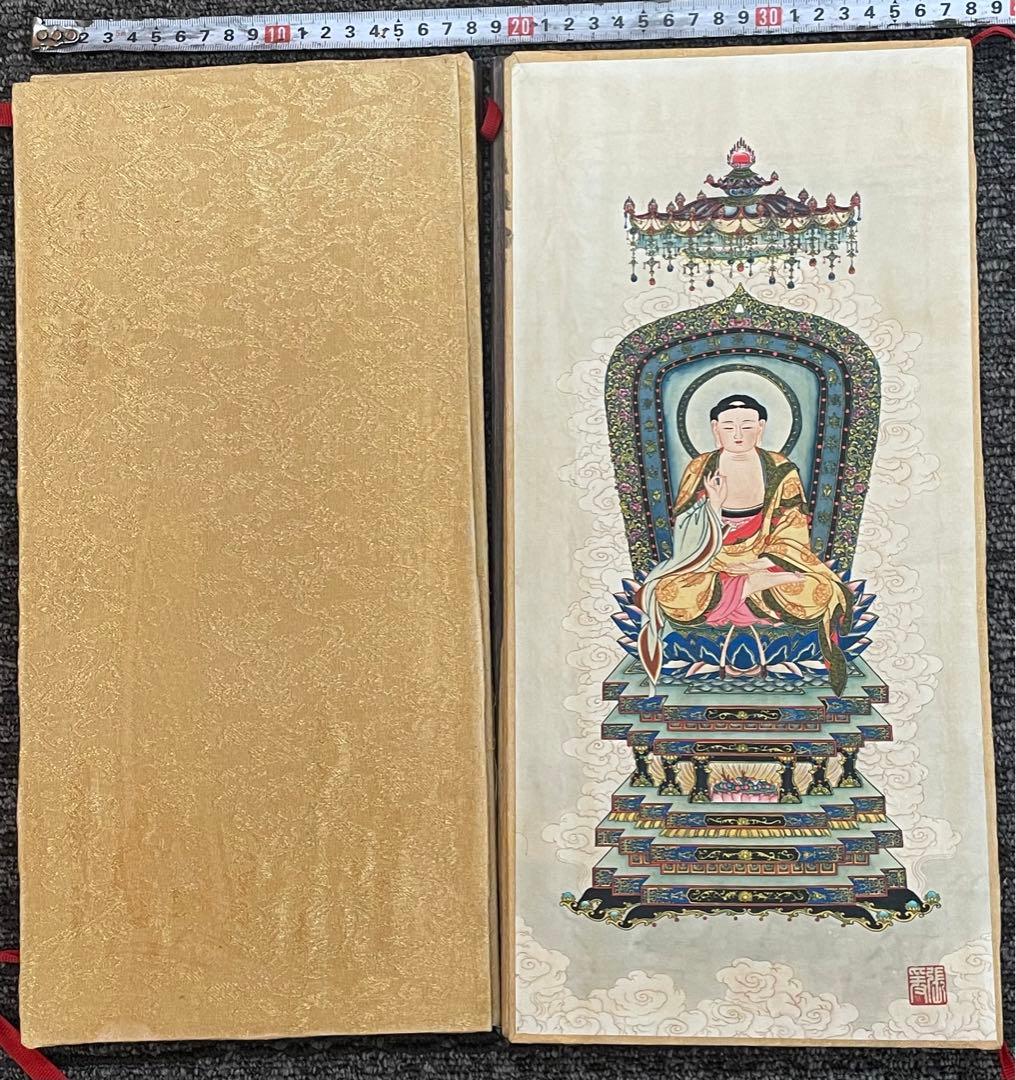 2 3 4 5 6 7 8 9 10 1 2 3 4 5 6 7 8 9 20 1 2 3 4 5 6 7 8 9 30 1 2 3 4 5 6 7 8 9